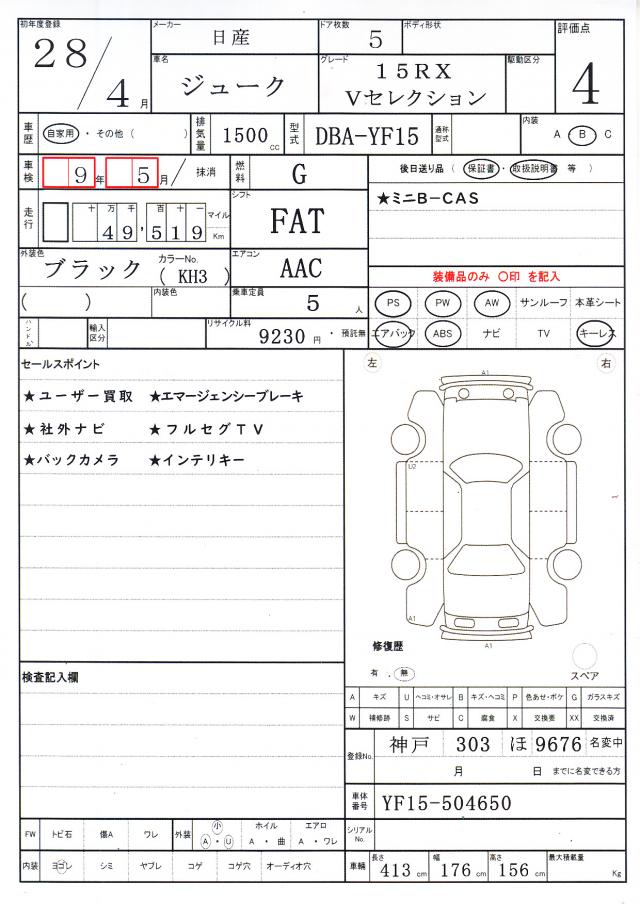 初年度登録 28 / 4 月 メーカー 日産 ドア枚数 5 ボディ形状 評価点 4
車名 ジューク グレード 15RX Vセレクション 駆動区分
車歴 自家用 ・ その他 ( ) 排気量 1500 cc 型式 DBA-YF15 通称型式 内装 A B C
車検 9 年 5 月 / 抹消 燃料 G 後日送り品 ( 保証書 ・ 取扱説明書 等 )
走行 十 万 千 百 十 一 49,519 マイル Km シフト FAT ★ミニB-CAS
外装色 ブラック カラーNo. ( KH3 ) エアコン AAC 装備品のみ 〇印 を記入
( ) 内装色 乗車定員 5 人 PS PW AW サンルーフ 本革シート
ハンドル 輸入区分 リサイクル料 9230 円 ・ 預託無 エアバック ABS ナビ TV キーレス
セールスポイント 左 右
★ユーザー買取 ★エマージェンシーブレーキ
★社外ナビ ★フルセグTV
★バックカメラ ★インテリキー
A1
U2
A1
A1
修復歴
有 . 無 スペア
検査記入欄
A キズ U ヘコミ・オサレ B キズ・ヘコミ P 色あせ・ボケ G ガラスキズ
W 補修跡 S サビ C 腐食 X 交換要 XX 交換済
登録No. 神戸 303 ほ 9676 名変中
月 日 までに名変できる方
車体番号 YF15-504650
FW トビ石 傷A ワレ 外装 小 A ・ U ホイル A ・ 曲 エアロ A ・ ワレ シリアルNo.
内装 ヨゴレ シミ ヤブレ コゲ コゲ穴 オーディオ穴 車輌 長さ 413 cm 幅 176 cm 高さ 156 cm 最大積載量 Kg